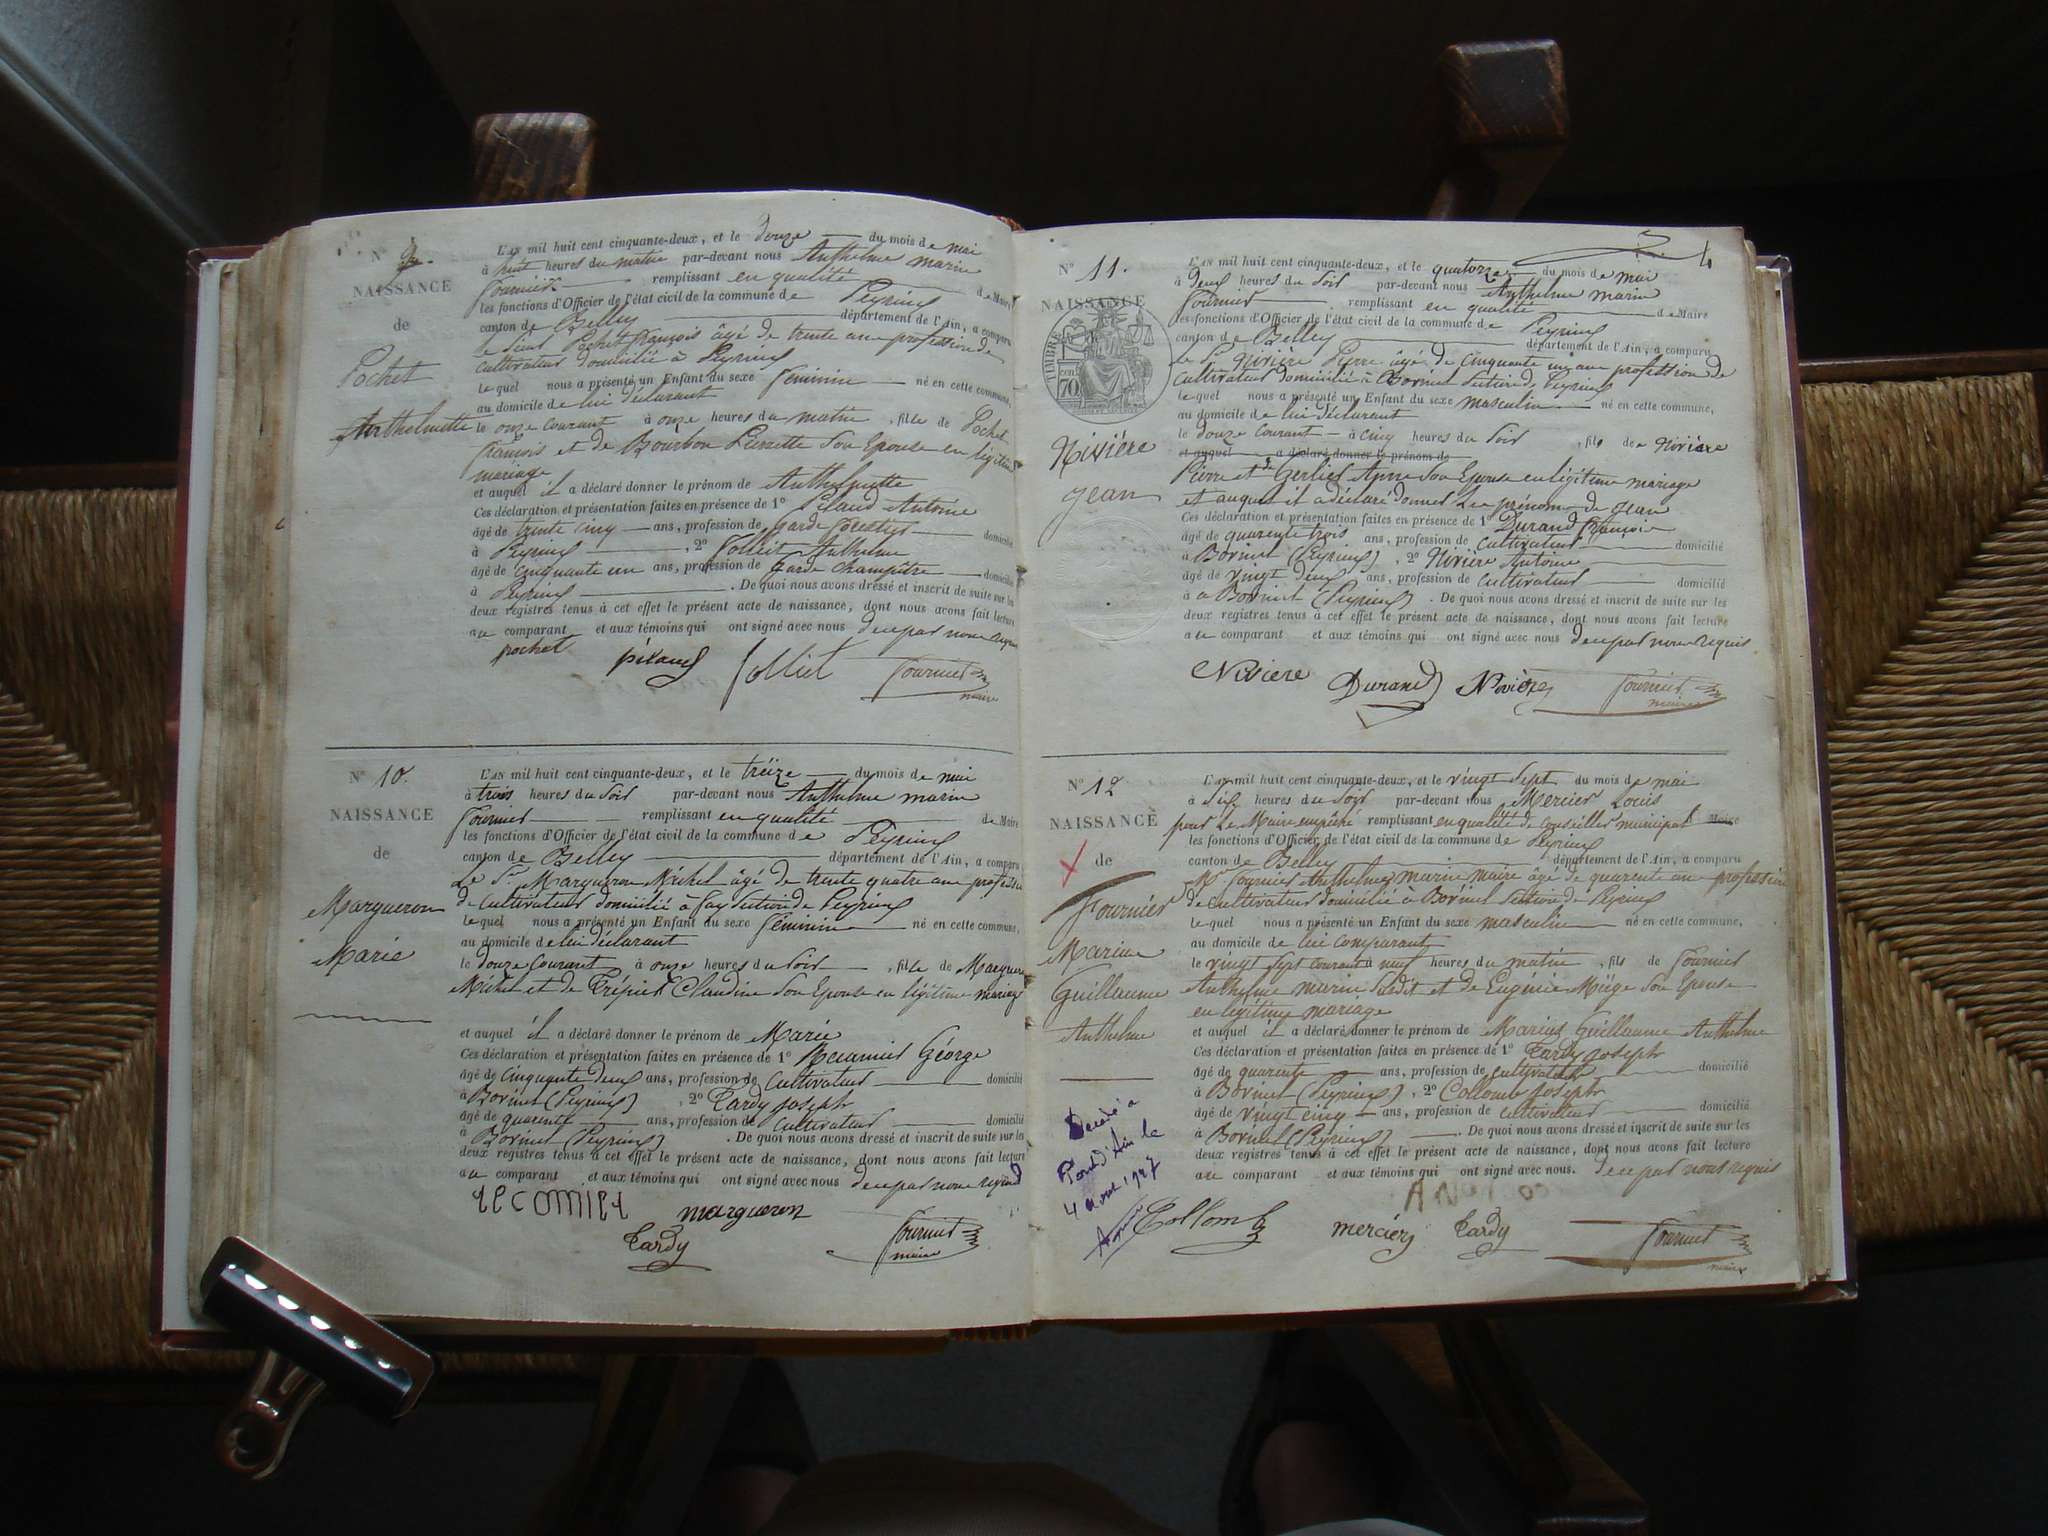 N° 9.
NAISSANCE
de
Pochet
Anthelmette
L'AN mil huit cent cinquante-deux, et le douze du mois de mai
à huit heures du matin par-devant nous Anthelme marin
Fournier remplissant en qualité de Maire
les fonctions d'Officier de l'état civil de la commune de Peyrieu
canton de Belley département de l'Ain, a comparu
le Sieur Pochet françois âgé de trente ans profession de
cultivateur domicilié à Peyrieu
lequel nous a présenté un Enfant du sexe féminin né en cette commune,
au domicile de lui déclarant
le onze courant à onze heures du matin, fille de Pochet
françois et de Bourbon Lussette son Epouse en légitime
mariage
et auquel il a déclaré donner le prénom de Anthelmette
Ces déclaration et présentation faites en présence de 1° Pilaud Antoine
âgé de trente cinq ans, profession de garde forestier domicilié
à Peyrieu, 2° Jolliet Anthelme
âgé de cinquante un ans, profession de garde champêtre domicilié
à Peyrieu. De quoi nous avons dressé et inscrit de suite sur les
deux registres tenus à cet effet le présent acte de naissance, dont nous avons fait lecture
au comparant et aux témoins qui ont signé avec nous de ce par nous requis
pochet pilaud Jolliet Fournier
maire
N° 10.
NAISSANCE
de
Margueron
Marie
L'AN mil huit cent cinquante-deux, et le treize du mois de mai
à trois heures du soir par-devant nous Anthelme marin
Fournier remplissant en qualité de Maire
les fonctions d'Officier de l'état civil de la commune de Peyrieu
canton de Belley département de l'Ain, a comparu
Le Sr Margueron Michel âgé de trente quatre ans profession
de cultivateur domicilié à fay section de Peyrieu
lequel nous a présenté un Enfant du sexe féminin né en cette commune,
au domicile de lui déclarant
le douze courant à onze heures du soir, fille de Margueron
Michel et de Trépier Claudine son Epouse en légitime mariage
et auquel il a déclaré donner le prénom de Marie
Ces déclaration et présentation faites en présence de 1° Récamier George
âgé de cinquante deux ans, profession de cultivateur domicilié
à Borinet (Peyrieu), 2° Tardy joseph
âgé de quarente ans, profession de cultivateur domicilié
à Borinet (Peyrieu). De quoi nous avons dressé et inscrit de suite sur les
deux registres tenus à cet effet le présent acte de naissance, dont nous avons fait lecture
au comparant et aux témoins qui ont signé avec nous de ce par nous requis
recamier margueron
Tardy Fournier
maire
4
N° 11.
NAISSANCE
TIMBRE
70
Nivière
jean
L'AN mil huit cent cinquante-deux, et le quatorze du mois de mai
à deux heures du soir par-devant nous Anthelme marin
Fournier remplissant en qualité de Maire
les fonctions d'Officier de l'état civil de la commune de Peyrieu
canton de Belley département de l'Ain, a comparu
Le Sr Nivière Pierre âgé de cinquante un ans profession de
cultivateur domicilié à Borinet section de Peyrieu
lequel nous a présenté un Enfant du sexe masculin né en cette commune,
au domicile de lui déclarant
le douze courant à cinq heures du soir, fils de Nivière
et auquel a déclaré donner le prénom de
Pierre et de Gerlier son Epouse en légitime mariage
et auquel il a déclaré donner Le prénom de jean
Ces déclaration et présentation faites en présence de 1° Durand françois
âgé de quarente trois ans, profession de cultivateur domicilié
à Borinet (Peyrieu), 2° Nivière Antoine
âgé de vingt deux ans, profession de cultivateur domicilié
à a Borinet (Peyrieu). De quoi nous avons dressé et inscrit de suite sur les
deux registres tenus à cet effet le présent acte de naissance, dont nous avons fait lecture
au comparant et aux témoins qui ont signé avec nous de ce par nous requis
Nivière Durand Nivière Fournier
maire
N° 12
NAISSANCE
de
Fournier
Marius
Guillaume
Anthelme
Décédé à
Pont d'Ain le
4 aout 1927
L'AN mil huit cent cinquante-deux, et le vingt sept du mois de mai
à six heures du soir par-devant nous Mercier Louis
pour Le Maire empêché remplissant en qualité de conseiller municipal Maire
les fonctions d'Officier de l'état civil de la commune de Peyrieu
canton de Belley département de l'Ain, a comparu
Mr Fournier Anthelme marin maire âgé de quarente ans profession
de cultivateur domicilié à Borinet section de Peyrieu
lequel nous a présenté un Enfant du sexe masculin né en cette commune,
au domicile de lui comparant
le vingt sept courant à neuf heures du matin, fils de Fournier
Anthelme marin susdit et de Eugénie Miège son Epouse
en légitime mariage
et auquel il a déclaré donner le prénom de Marius Guillaume Anthelme
Ces déclaration et présentation faites en présence de 1° Tardy joseph
âgé de quarente ans, profession de cultivateur domicilié
à Borinet (Peyrieu), 2° Collomb joseph
âgé de vingt cinq ans, profession de cultivateur domicilié
à Borinet (Peyrieu). De quoi nous avons dressé et inscrit de suite sur les
deux registres tenus à cet effet le présent acte de naissance, dont nous avons fait lecture
au comparant et aux témoins qui ont signé avec nous. de ce par nous requis
Collomb mercier Tardy Fournier
maire